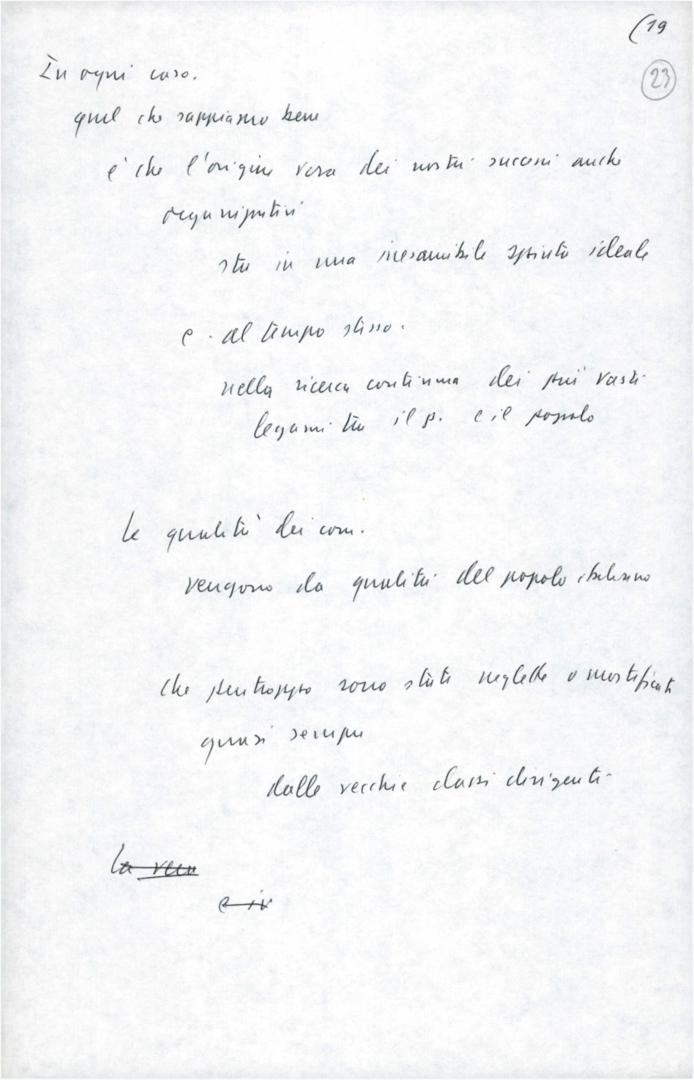 (19
23
In ogni caso.
quel che sappiamo bene
è che l'origine vera dei nostri successi anche
organizzativi
sta in una inesauribile spinta ideale
e. al tempo stesso.
nella ricerca continua dei più vasti
legami tra il p. e il popolo
Le qualità dei com.
vengono da qualità del popolo italiano
che purtroppo sono state neglette o mortificate
quasi sempre
dalle vecchie classi dirigenti.
La